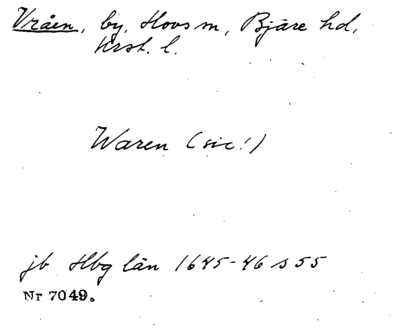 Vråen, by, Hovs sn, Bjäre hd,
Krist. l.
Waren (sic!)
jb Hbg län 1645-46 s 55
Nr 7049.